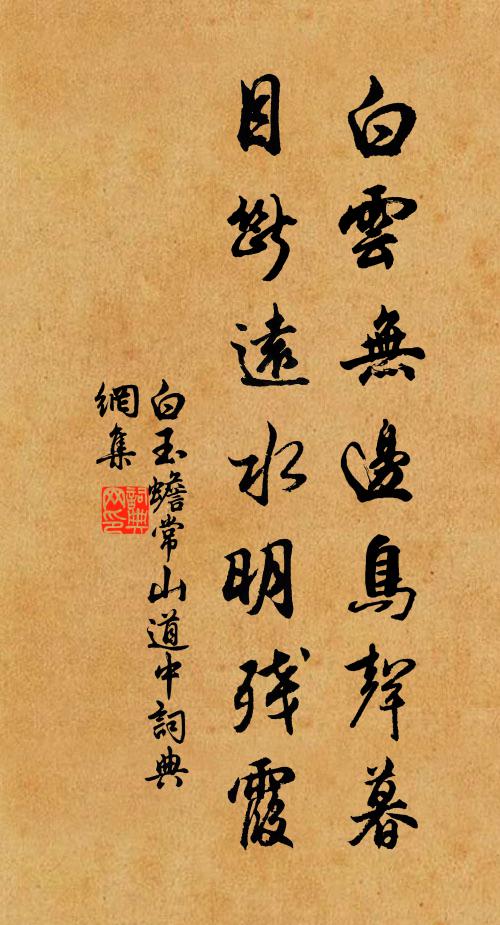 白雲無邊鳥聲暮
目斷遠水明残霞
白玉蟾常山道中詞典
網集
詞典
网印